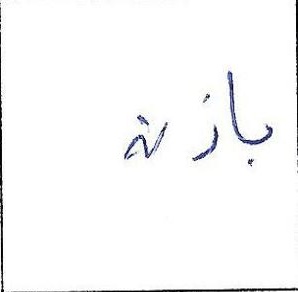 بازنة